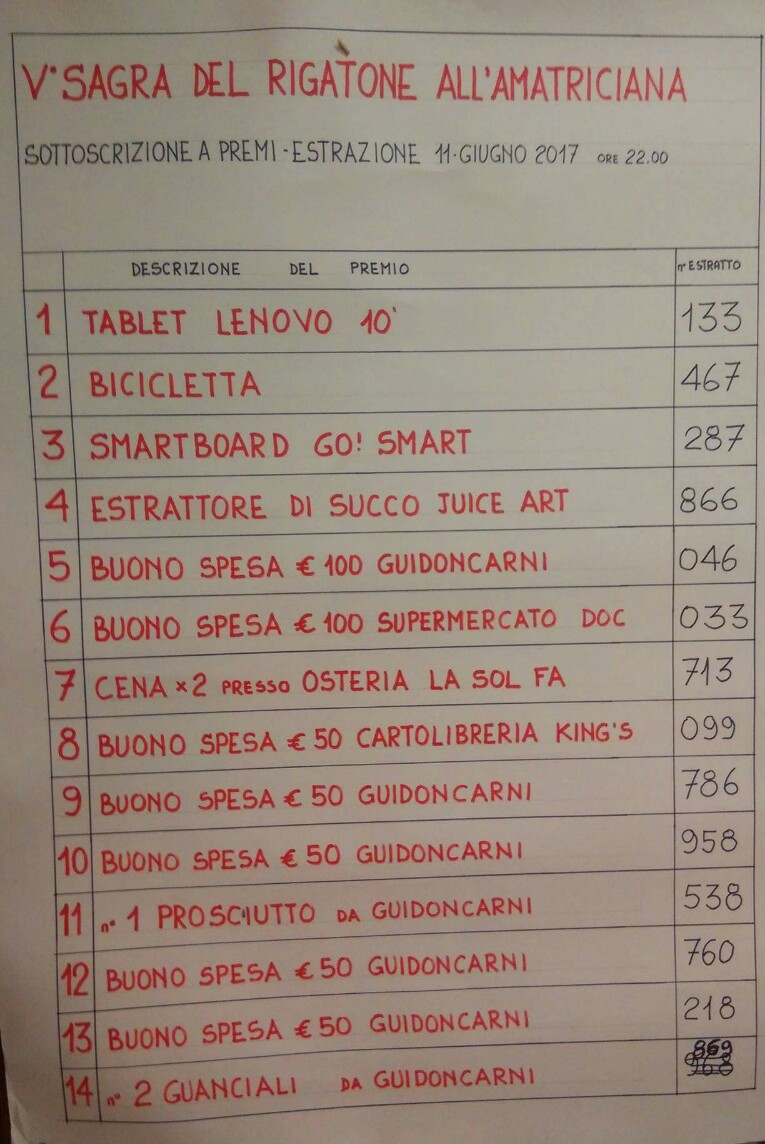 V° SAGRA DEL RIGATONE ALL'AMATRICIANA
SOTTOSCRIZIONE A PREMI - ESTRAZIONE 11·GIUGNO 2017 ORE 22.00
DESCRIZIONE DEL PREMIO n° ESTRATTO
1 TABLET LENOVO 10' 133
2 BICICLETTA 467
3 SMARTBOARD GO! SMART 287
4 ESTRATTORE DI SUCCO JUICE ART 866
5 BUONO SPESA € 100 GUIDONCARNI 046
6 BUONO SPESA € 100 SUPERMERCATO DOC 033
7 CENA x 2 PRESSO OSTERIA LA SOL FA 713
8 BUONO SPESA € 50 CARTOLIBRERIA KING'S 099
9 BUONO SPESA € 50 GUIDONCARNI 786
10 BUONO SPESA € 50 GUIDONCARNI 958
11 n° 1 PROSCIUTTO DA GUIDONCARNI 538
12 BUONO SPESA € 50 GUIDONCARNI 760
13 BUONO SPESA € 50 GUIDONCARNI 218
14 n° 2 GUANCIALI DA GUIDONCARNI 869